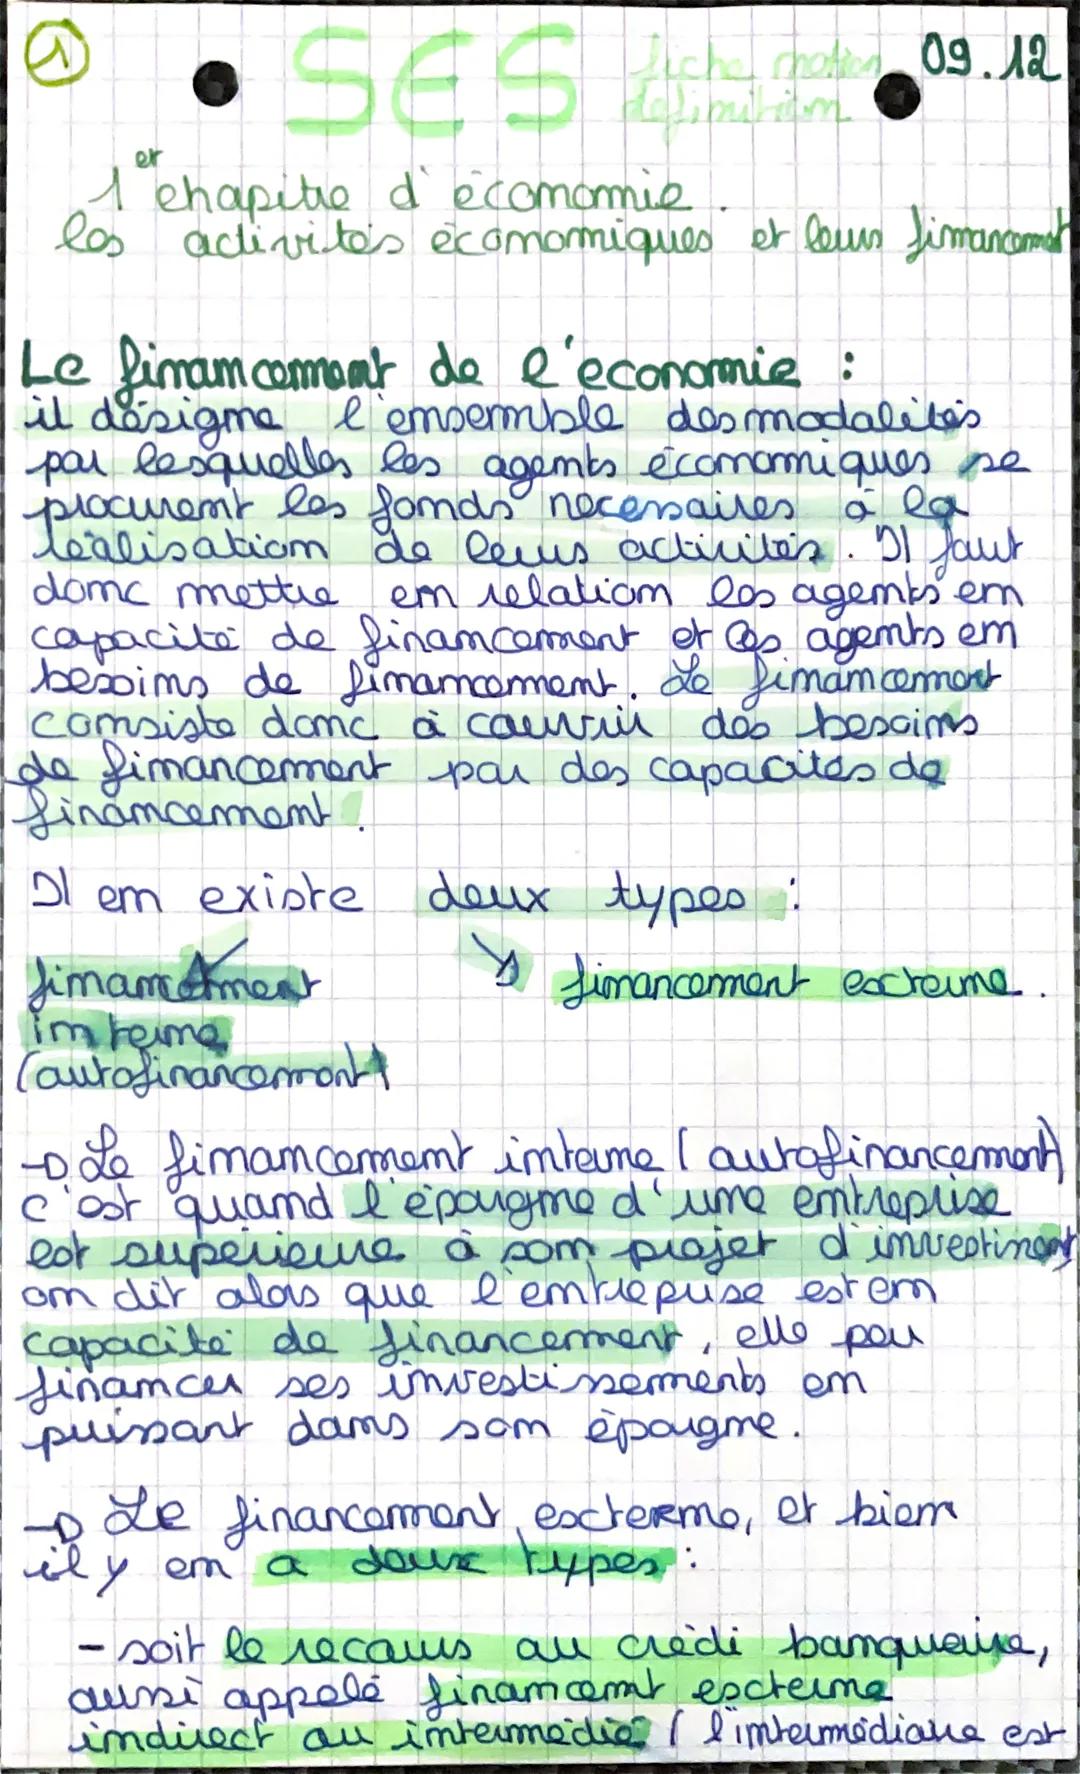 1
SES fiche notion 09.12
definition
1er chapitre d'économie.
les activités économiques et leurs financement
Le financement de l'economie :
il désigne l'ensemble des modalités
par lesquelles les agents économiques se
procurent les fonds necessaires à la
réalisation de leurs activités. Il faut
donc mettre en relation les agents en
capacité de financement et les agents en
besoins de financement. Le financement
consiste donc à couvrir des besoins
de financement par des capacités de
financement.
Il en existe deux types :
financement
interne
(autofinancement)
financement externe.
→ Le financement interne (autofinancement)
c'est quand l'épargne d'une entreprise
est supérieure à son projet d'investiment
on dit alors que l'entrepise est en
capacité de financement, elle peu
financer ses investissements en
puissant dans son épargne.
→ Le financement externe, et bien
il y en a deux types :
- soit le recours au crédi banquaire,
aussi appelé financemt externe
indirect ou intermédié (l'intermédiaire est